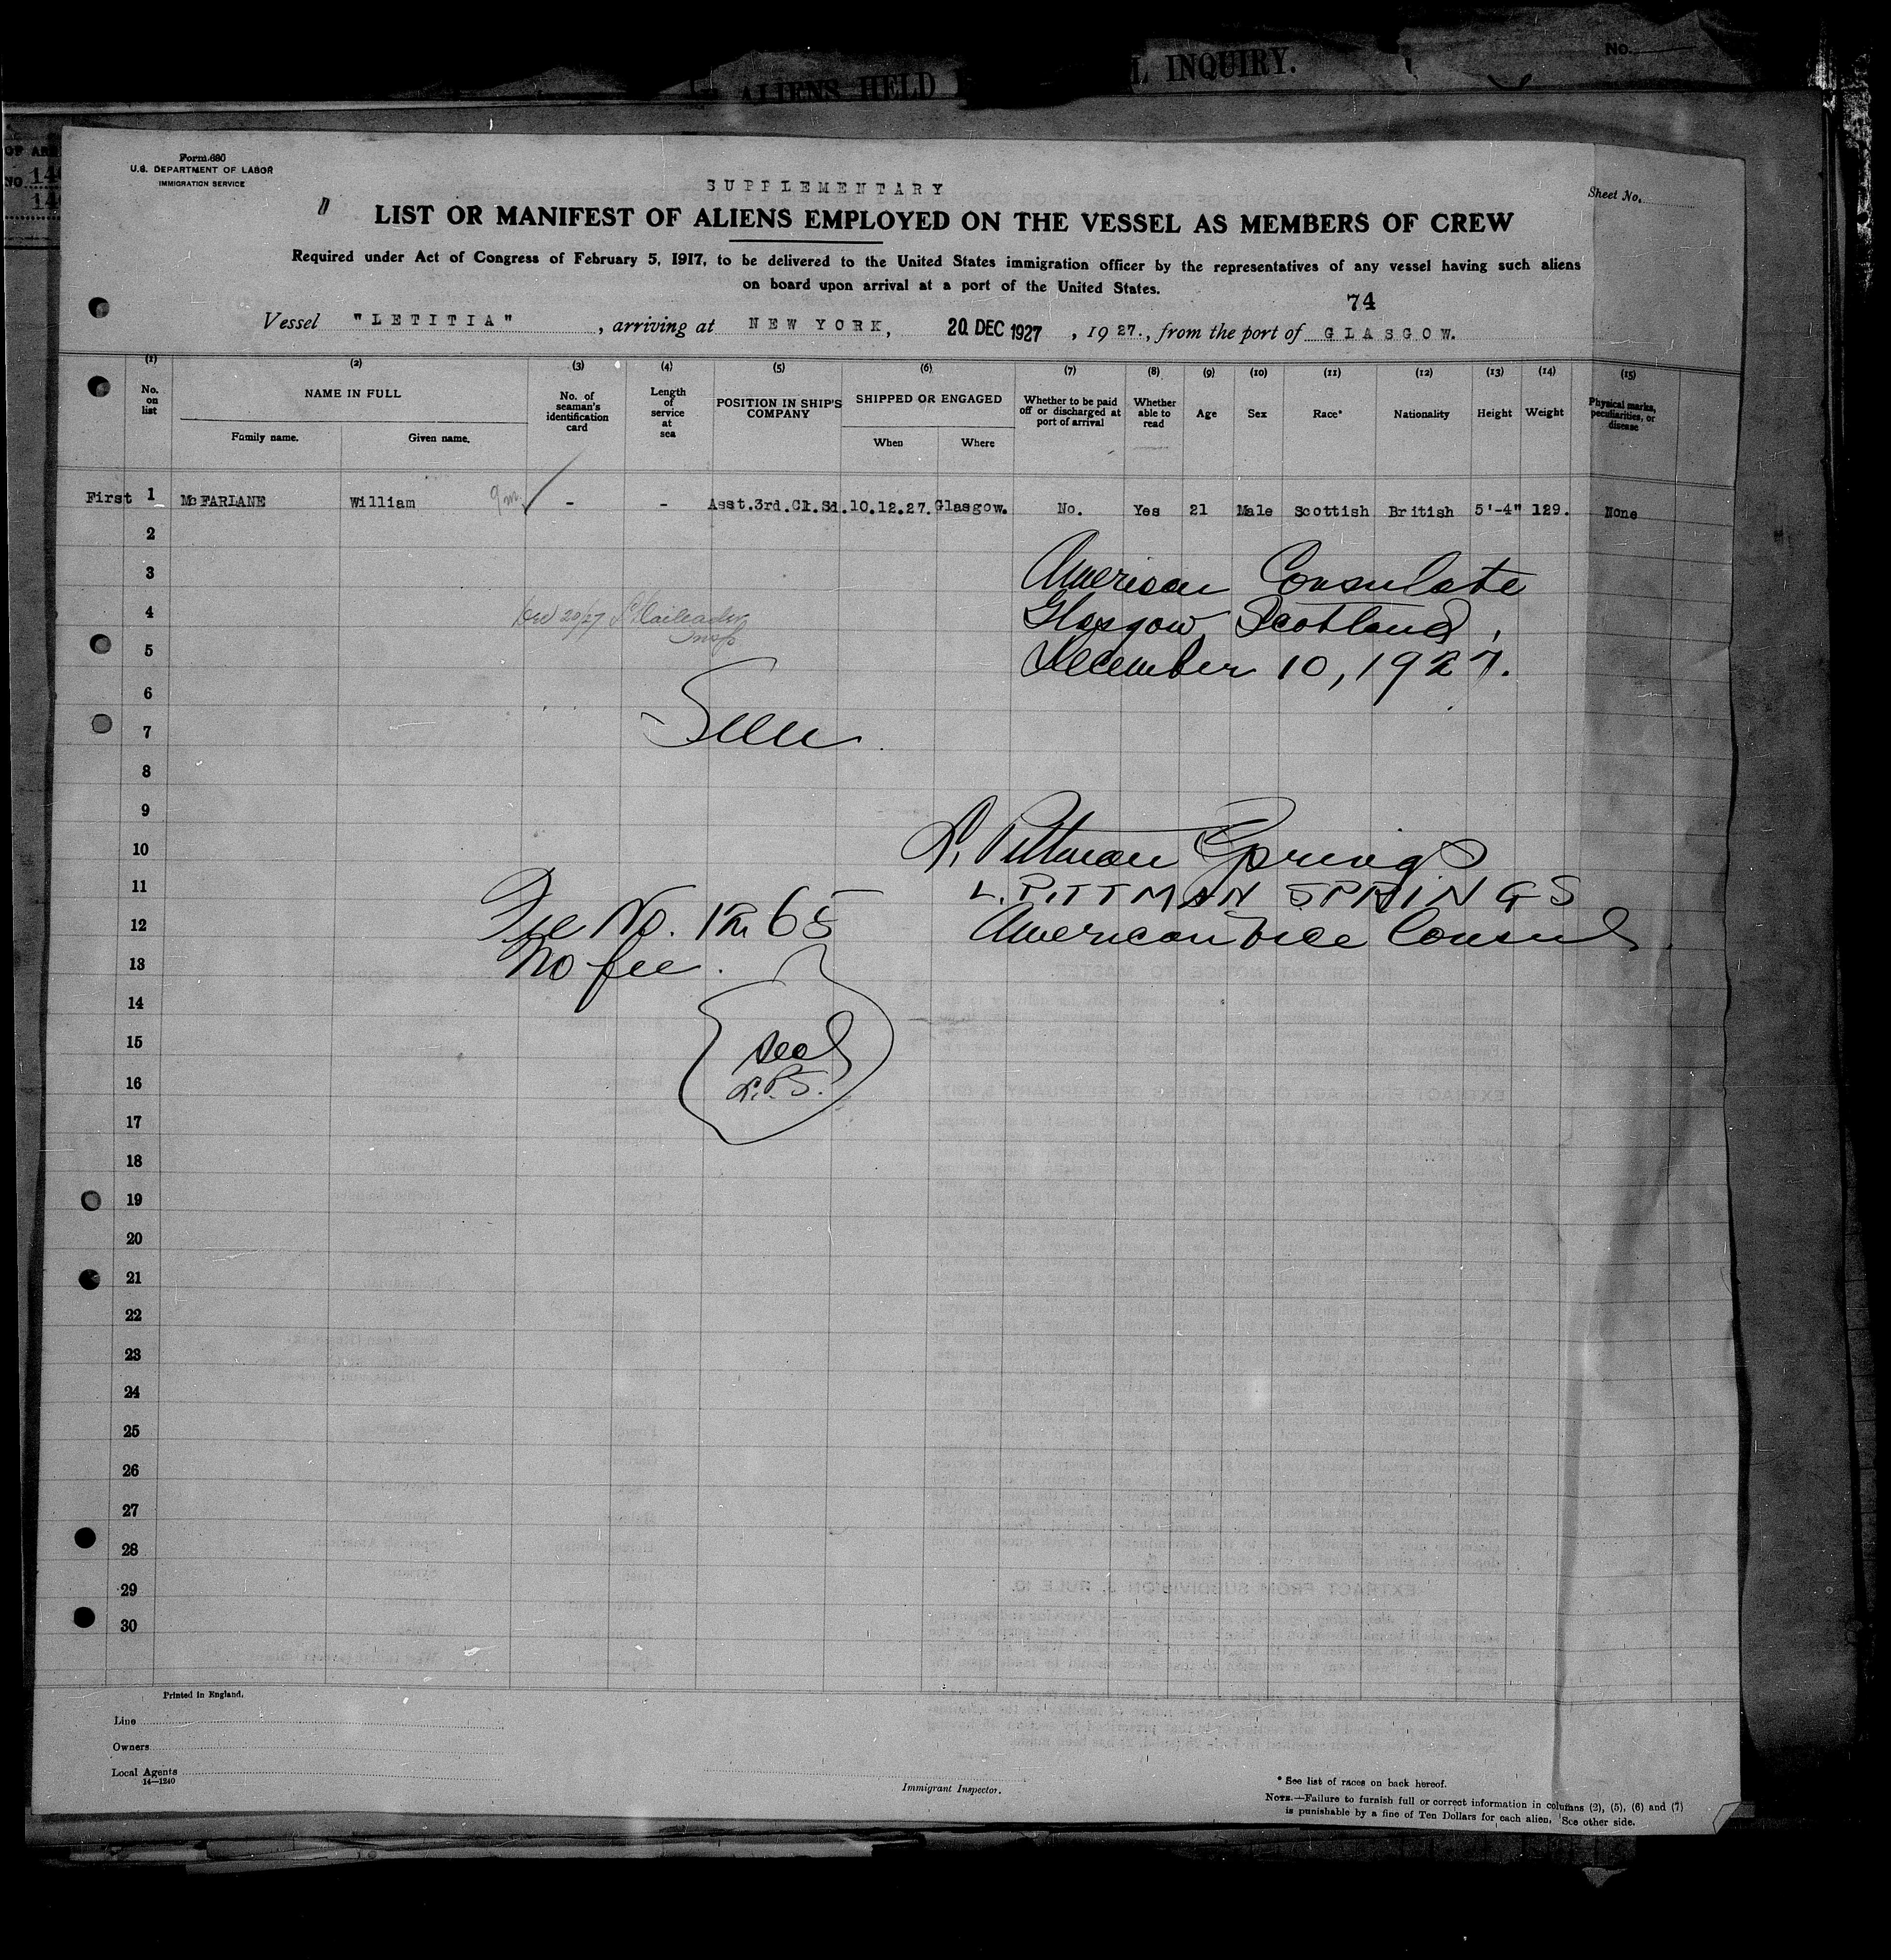 ALIENS HELD
L INQUIRY.
No.
Form 680
U.S. DEPARTMENT OF LABOR
IMMIGRATION SERVICE
SUPPLEMENTARY
Sheet No.
LIST OR MANIFEST OF ALIENS EMPLOYED ON THE VESSEL AS MEMBERS OF CREW
Required under Act of Congress of February 5, 1917, to be delivered to the United States immigration officer by the representatives of any vessel having such aliens
on board upon arrival at a port of the United States.
74
Vessel "LETITIA", arriving at NEW YORK, 20 DEC 1927, 1927., from the port of GLASGOW.
(1) (2) (3) (4) (5) (6) (7) (8) (9) (10) (11) (12) (13) (14) (15)
No. on list NAME IN FULL No. of seaman's identification card Length of service at sea POSITION IN SHIP'S COMPANY SHIPPED OR ENGAGED Whether to be paid off or discharged at port of arrival Whether able to read Age Sex Race* Nationality Height Weight Physical marks, peculiarities, or disease
Family name. Given name. When Where
First 1 McFARLANE William - - Asst.3rd.Cl.Sd. 10.12.27. Glasgow. No. Yes 21 Male Scottish British 5'-4" 129. None
2
3 American Consulate
4 Glasgow, Scotland,
Dec 20/27
Insp
5 December 10, 1927.
6
7 Seen
8
9
10 L. Pittman Springs
11 L. PITTMAN SPRINGS
12 Fee No. 1265 American Vice Consul.
13 No fee.
14
15 seal
16 L.P.S.
17
18
19
20
21
22
23
24
25
26
27
28
29
30
Printed in England.
Line
Owners
Local Agents
14—1240
Immigrant Inspector.
* See list of races on back hereof.
NOTE.—Failure to furnish full or correct information in columns (2), (5), (6) and (7)
is punishable by a fine of Ten Dollars for each alien. See other side.